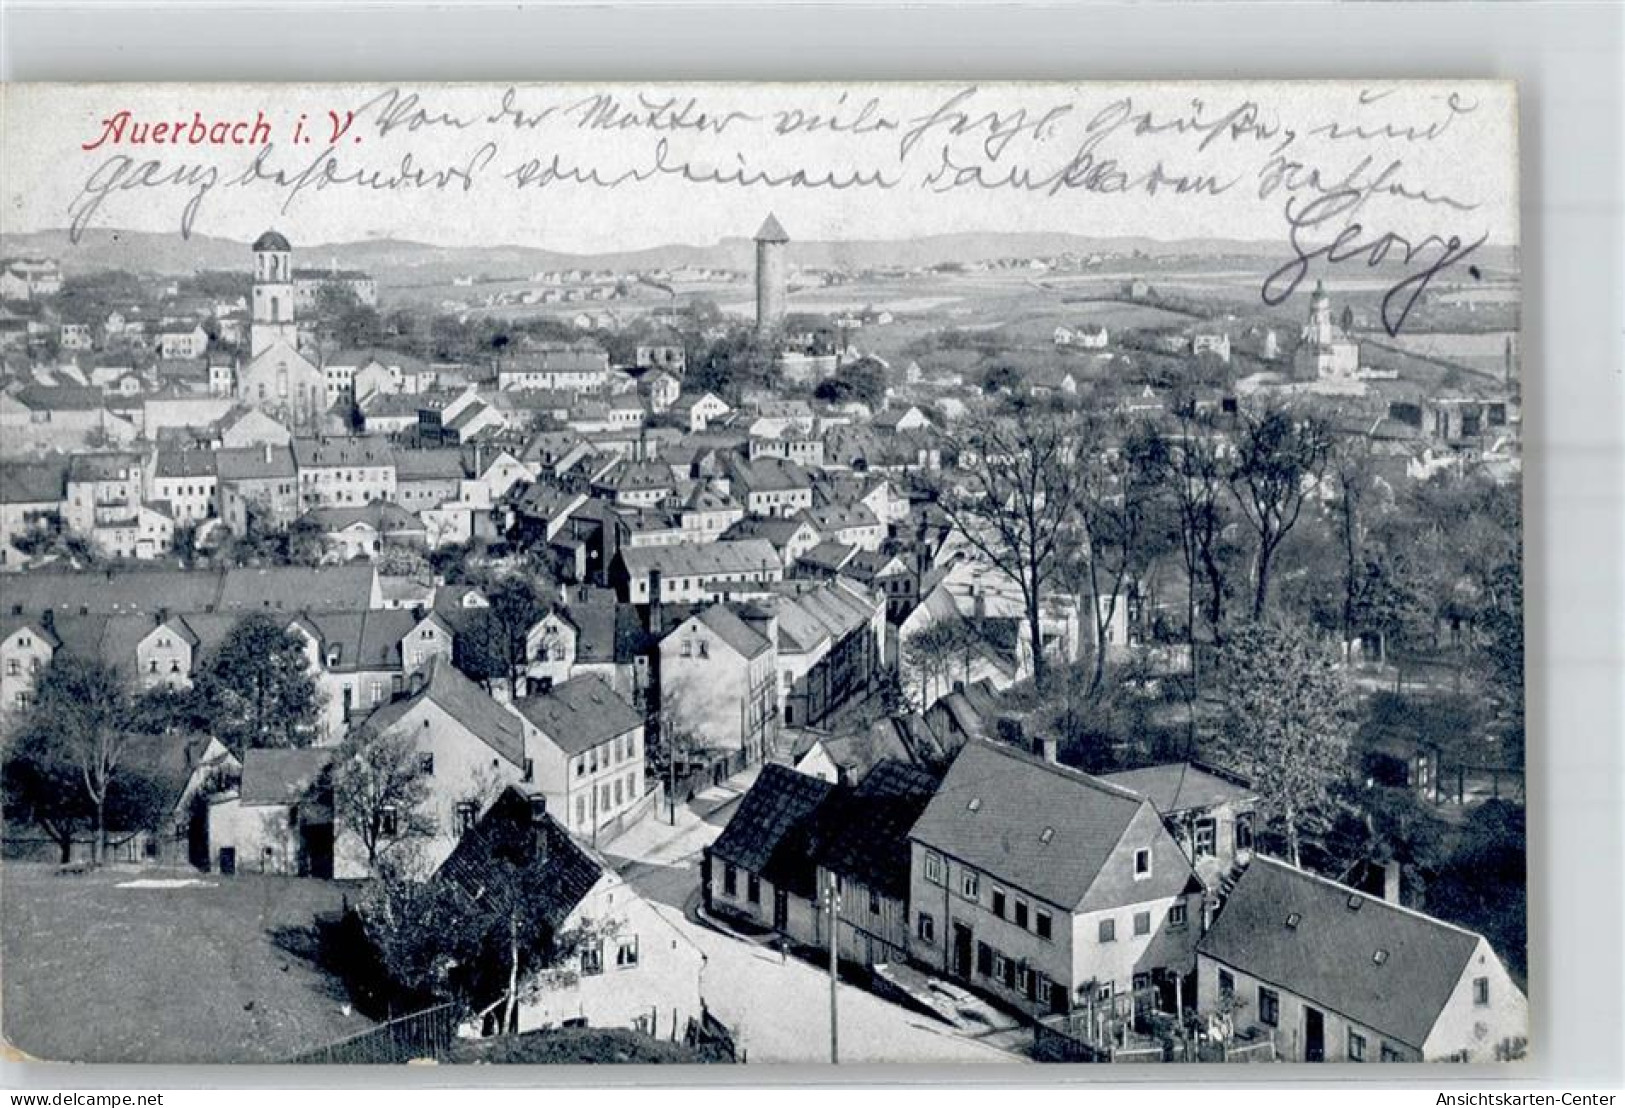 Auerbach i. V. Von der Mutter viele herzl. Grüße, und
ganz besonders von deinem dankbaren Neffen
Georg.
oldthing.com
Ansichtskarten-Center